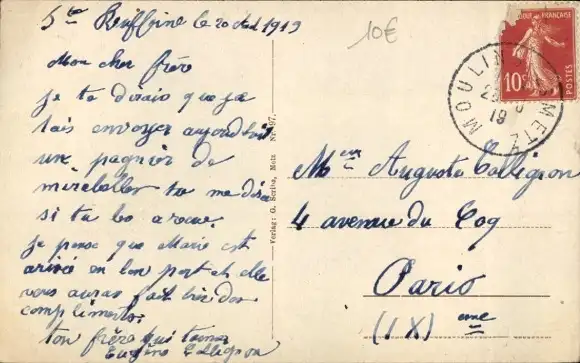 Ste Ruffine le 20 Aout 1919
10€
Mon cher frère
je te dirais que je
fais envoyer aujourdhui
une pagnier de
mirabelles tu me diras
si tu les a reçue.
je pense que Marie est
arrivée en bon port et elle
vous auras fait bien des
compliments.
ton frère qui taime
Eugène Collignon
Verlag: G. Scriba, Metz Nr. 97.
RÉPUBLIQUE FRANÇAISE
10c
POSTES
MOULINS METZ
19
Mr Auguste Collignon
4 avenue du Coq
Paris
(IX) eme